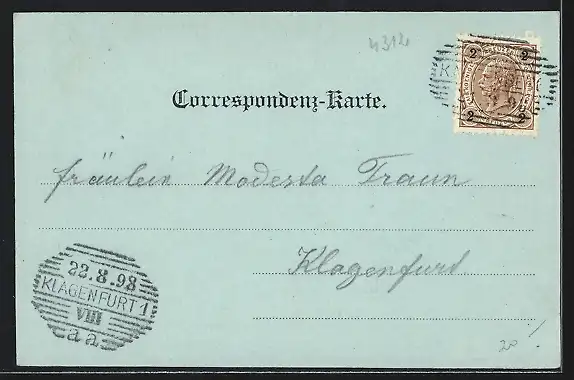 4312
2 2
Correspondenz-Karte.
2 2
fräulein Modesta Traun
Klagenfurt
22.8.98
KLAGENFURT 1
VIII
a a
20